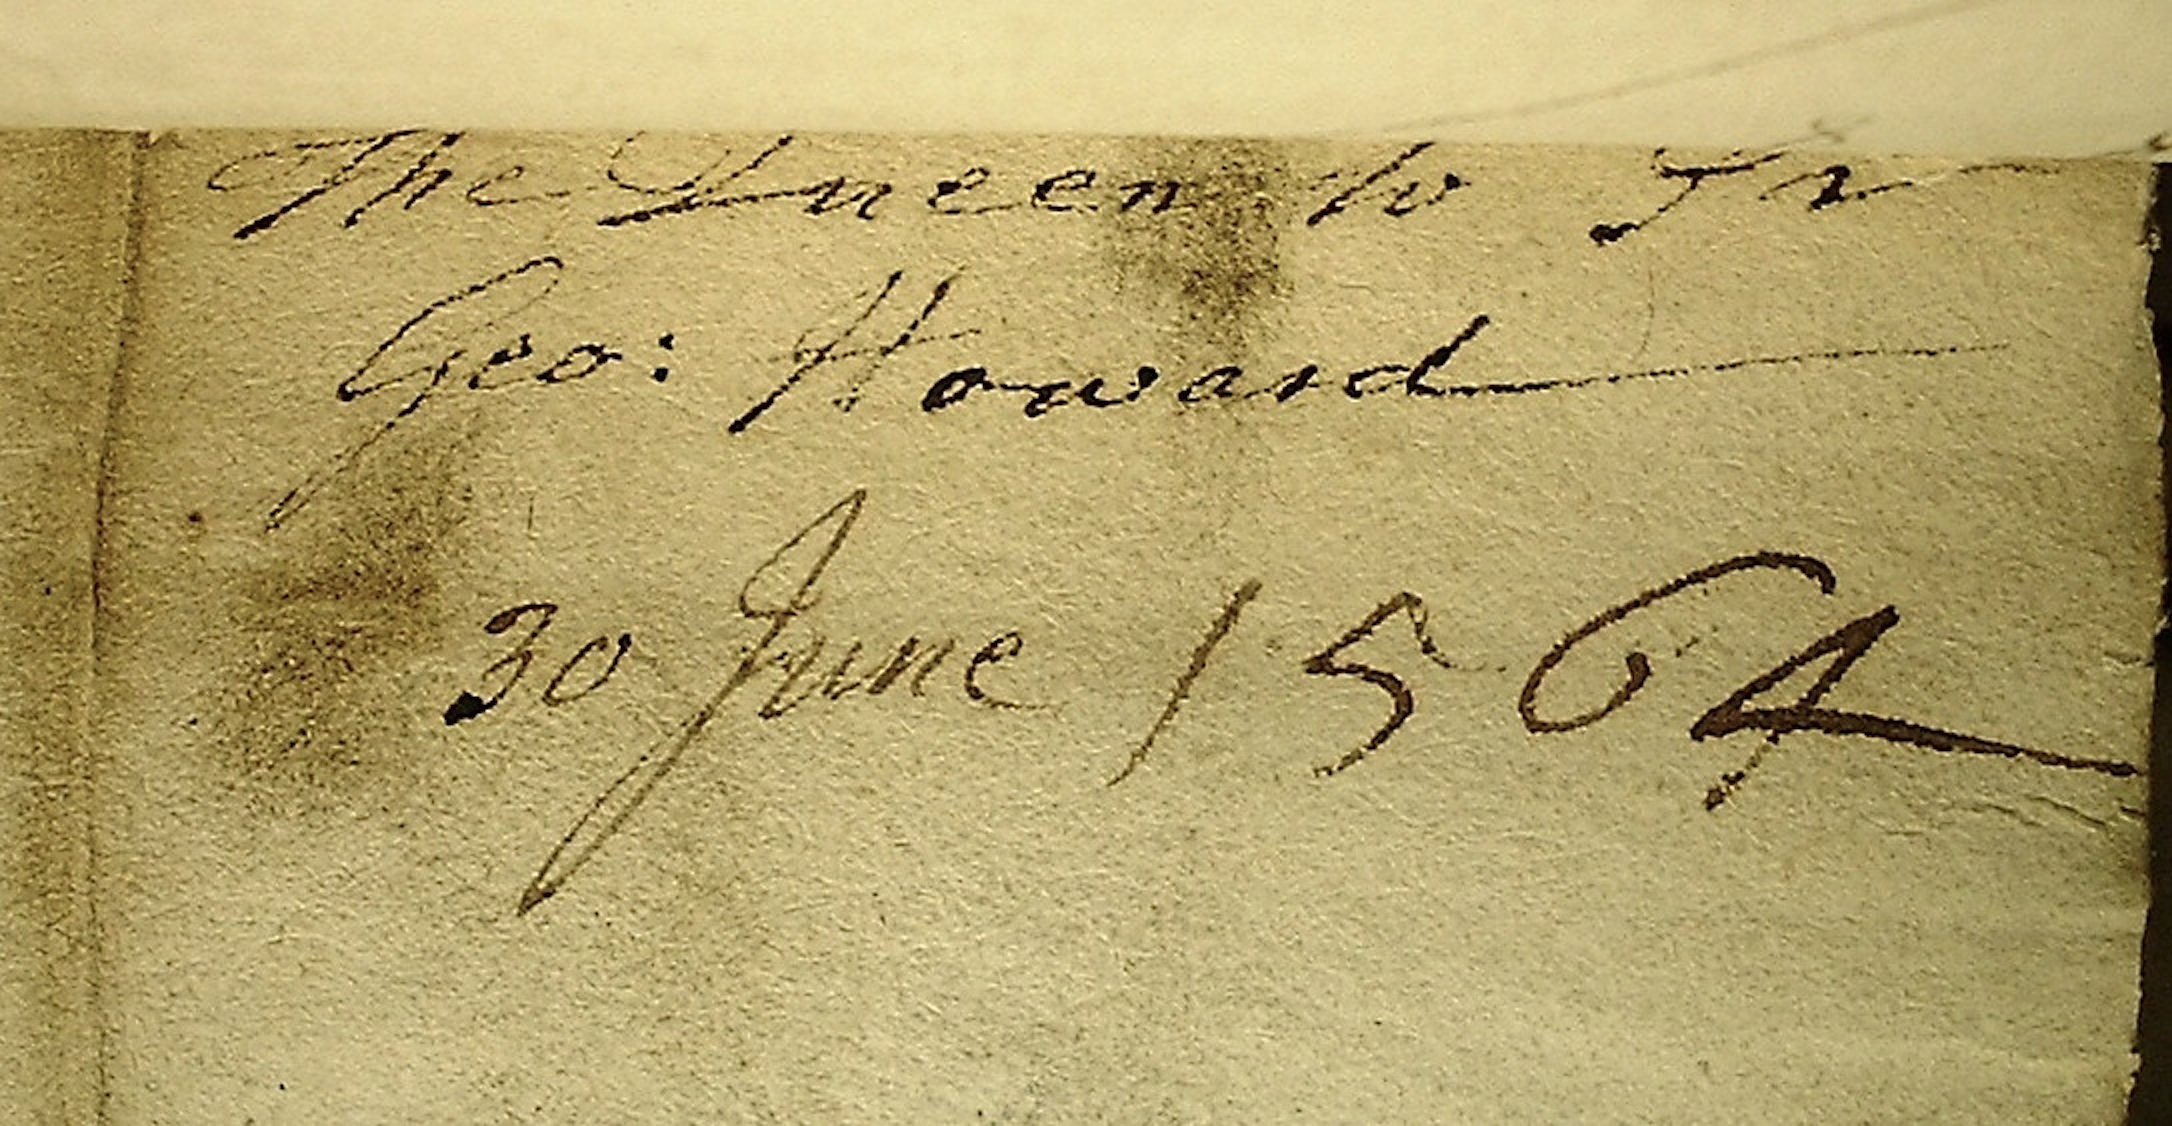 The Queen to Sr
Geo: Howard
30 June 1564